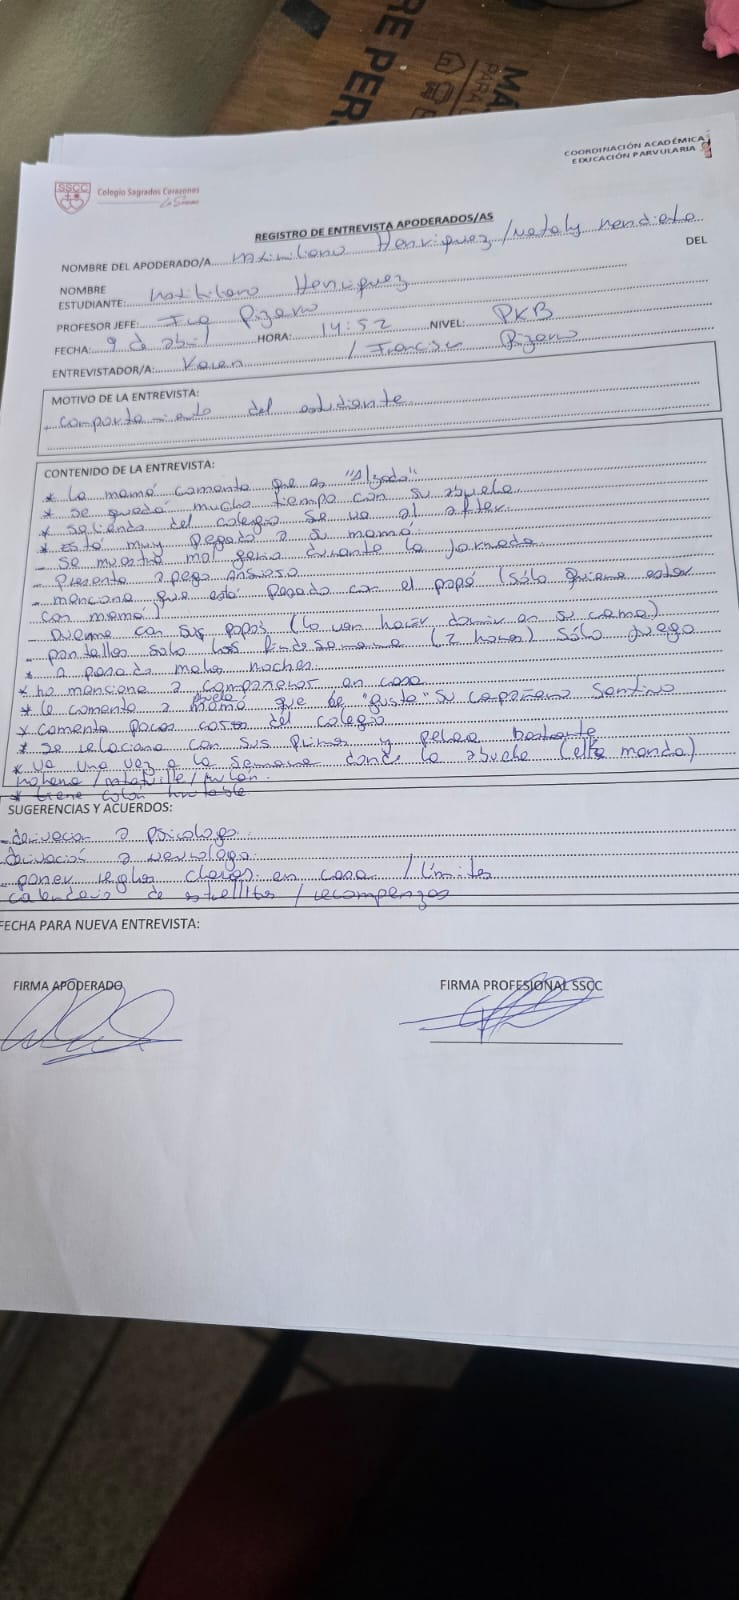 RE PER
MA
PARA
COORDINACIÓN ACADÉMICA
EDUCACIÓN PARVULARIA
SSCC
Colegio Sagrados Corazones
La Serena
REGISTRO DE ENTREVISTA APODERADOS/AS
NOMBRE DEL APODERADO/A Maximiliano Henriquez / Nataly Mendieta
DEL
NOMBRE
ESTUDIANTE: Henriquez
PROFESOR JEFE: Pizarro
FECHA: 9 de abril HORA: 14:52 NIVEL: PKB
ENTREVISTADOR/A: Karen / Francisca Pizarro
MOTIVO DE LA ENTREVISTA:
- comportamiento del estudiante
CONTENIDO DE LA ENTREVISTA:
* La mamá comenta que es "alzado"
* se quedó mucho tiempo con su abuela
* saliendo del colegio se va al after
* está muy pegado a su mamá
- se muestra mal genio durante la jornada
- Presenta apego ansioso
- menciona que está pegado con el papá (sólo quiere estar
con mamá)
- Duerme con sus papás (lo van hacer dormir en su cama)
- pantallas solo los fin de semana (2 horas) sólo juego
* a pasado malas noches.
* no menciona a compañeros en casa
* le comenta a abuela mamá que le "gusta" su compañero Santino
* comenta pocas cosas del colegio
* se relaciona con sus primos y pelea bastante
* va una vez a la semana donde la abuela (ella manda)
* tiene colon irritable
SUGERENCIAS Y ACUERDOS:
- derivación a psicólogo
- derivación a neurólogo
- poner reglas claras en casa / límites
calendario de estrellitas / recompensas
FECHA PARA NUEVA ENTREVISTA:
FIRMA APODERADO
FIRMA PROFESIONAL SSCC